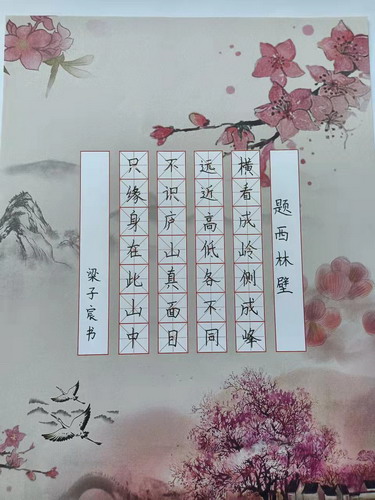 题西林壁
横看成岭侧成峰
远近高低各不同
不识庐山真面目
只缘身在此山中
梁子宸书